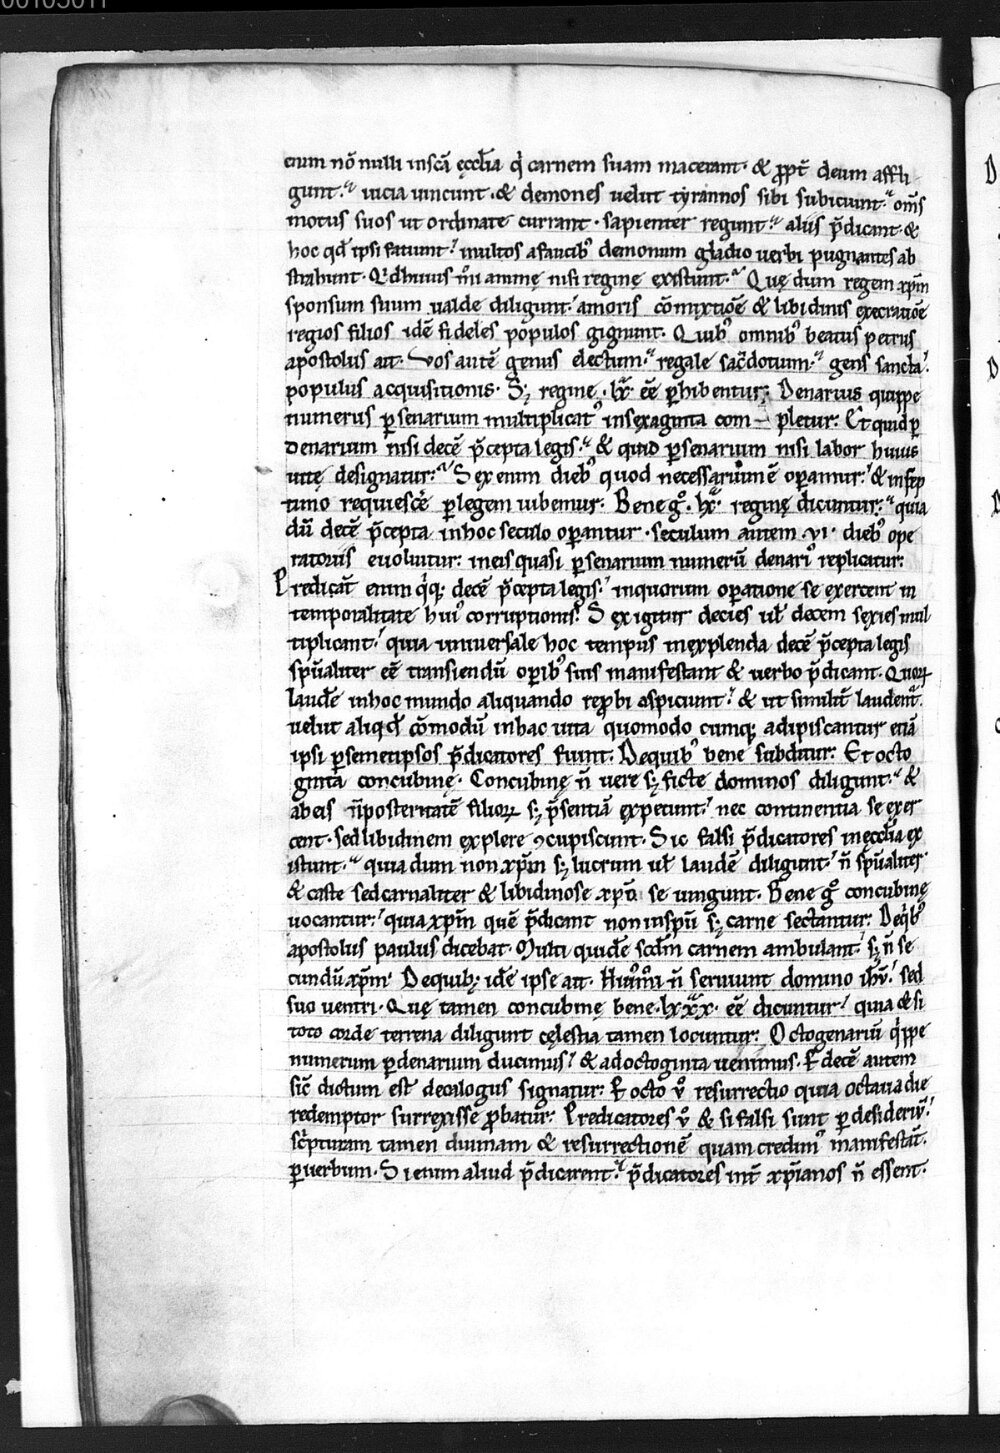 00103011
cium nō nulli inscā ęcctia q̇ carnem suam macerant. & ꝓpt̄ deum affli
gunt. uicia uincunt. & demones uelut tyrannos sibi subiciunt. om̄s
motus suos ut ordinate currant. sapienter regunt. aliis p̄dicant &
hoc qđ ipsi faciunt. multos a faucib; demonum gladio uerbi pugnantes ab
strahunt. Qđ huius m̄i animę nisi reginę existunt. Quę dum regem xp̄m
sponsum suum ualde diligunt. amoris cōmixtiōe & libidinis execratiōe
regios filios idē fideles populos gignunt. Quib; omnib; beatus petrus
apostolus ait. Vos autē genus electum. regale sac̄dotium. gens sancta.
populus acquisitionis. S; reginę .lx. eē ꝑhibentur. Denarius quippe
numerus ꝑ senarium multiplicat᾿ insexaginta com pletur. Et quid ꝑ
denarium nisi decē p̄cepta legis. & quid ꝑsenarium nisi labor huius
uitę designatur. Sex enim dieb; quod necessarium ē oꝑamur. & insep
timo requiescē ꝑ legem iubemur. Bene gͦ .lx. reginę dicuntur. quia
dū decē p̄cepta inhoc seculo oꝑantur. seculum autem .vi. dieb; ope
ratoriis euoluitur. ineis quasi ꝑsenarium numerū denari᾿ replicatur.
Predicāt enim q̇q; decē p̄cepta legis. inquorum oꝑatione se exercent in
temporalitate hui᾿ corruptionis. Sex igitur decies ut decem sexies mul
tiplicant. quia uniuersale hoc tempus inexplenda decē p̄cepta legis
sp̄ualiter eē transiendū oꝑib; suis manifestant & uerbo p̄dicant. Quoꝝ
laudē inhoc mundo aliquando reꝓbi aspiciunt. & ut similit̄ laudent᾿.
uelut aliqđ cōmodū inhac uita quomodo cumq; adipiscantur etiā
ipsi ꝑsemetipsos p̄dicatores fiunt. Dequib; bene subditur. Et octo
ginta concubinę. Concubinę n̄ uere s; ficte dominos diligunt. &
abeis n̄ posteritatē filioꝝ s; p̄sentiā expetunt. nec continentia se exer
cent. sed libidinem explere ꝯcupiscunt. Sic falsi p̄dicatores inęcctia ex
istunt. quia dum non xp̄m s; lucrum ut laudē diligunt. n̄ sp̄ualiter
& caste sed carnaliter & libidinose xp̄o se iungunt. Bene gͦ concubinę
uocantur. quia xp̄m quē p̄dicant non insp̄u s; carne sectantur. Deq̇b;
apostolus paulus dicebat. Multi quidē scdm̄ carnem ambulant. s; n̄ se
cundū xp̄m. Dequib; idē ipse ait. Hui᾿m̄i n̄ seruiunt domino ih̄u. sed
suo uentri. Quę tamen concubinę bene .lxxx. eē dicuntur. quia & si
toto corde terrena diligunt cęlestia tamen locuntur. Octogenariū q̇ppe
numerum ꝑdenarium ducimus. & adoctoginta uenimus. E decē autem
sic̄ dictum est decalogus signatur. E octo ũ resurrectio quia octaua die
redemptor surrexisse ꝓbatur. Predicatores ũ & si falsi sunt ꝑ desideriū.
sc̄pturam tamen diuinam & resurrectionē quam credim᾿ manifestāt.
ꝑuerbum. Si enim aliud p̄dicarent. p̄dicatores int̄ xp̄ianos n̄ essent.